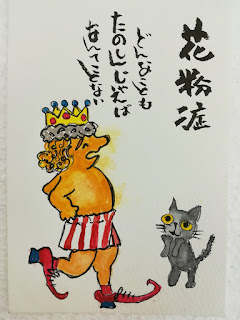 花粉症
どんなことも
たのしんじゃえば
なんてことない